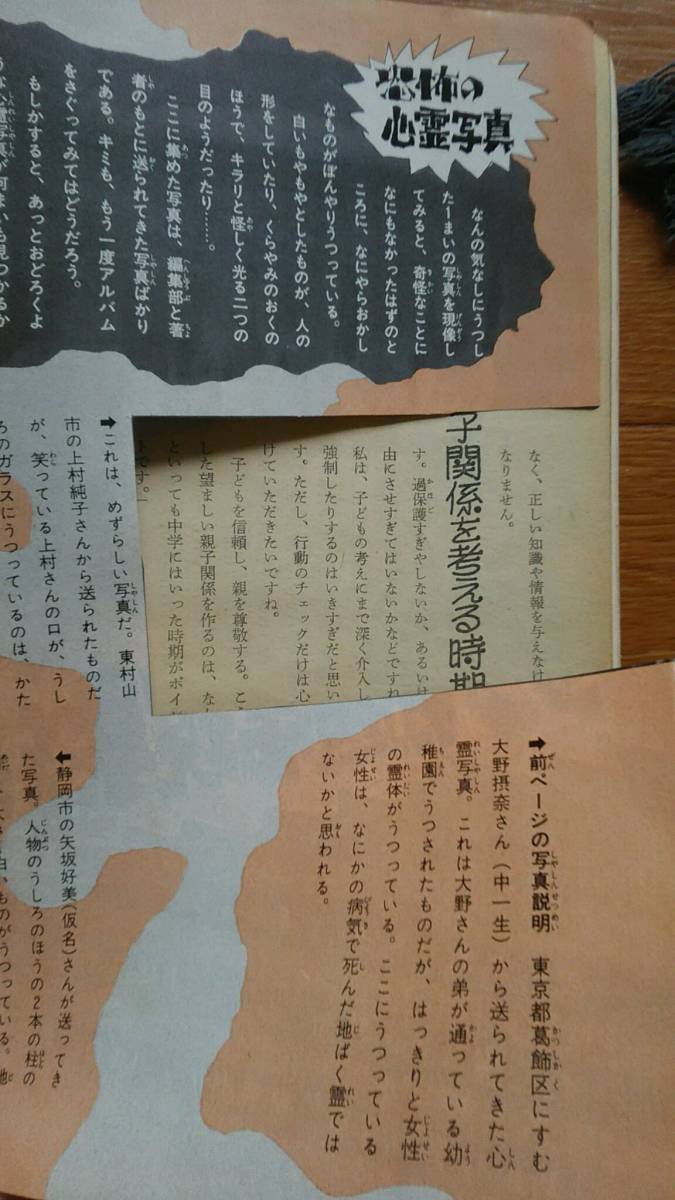 恐怖の
心霊写真
なんの気なしにうつし
た一まいの写真を現像し
てみると、奇怪なことに
なにもなかったはずのと
ころに、なにやらおかし
なものがぼんやりうつっている。
白いもやもやとしたものが、人の
形をしていたり、くらやみのおくの
ほうで、キラリと怪しく光る二つの
目のようだったり……。
ここに集めた写真は、編集部と著
者のもとに送られてきた写真ばかり
である。キミも、もう一度アルバム
をさぐってみてはどうだろう。
もしかすると、あっとおどろくよ
うな心霊写真が何まいも見つかるか
なく、正しい知識や情報を与えなけ
なりません。
子関係を考える時期
す。過保護すぎやしないか、あるいは
由にさせすぎてはいないかなどですね
私は、子どもの考えにまで深く介入し
強制したりするのはいきすぎだと思い
す。ただし、行動のチェックだけは心
けていただきたいですね。
子どもを信頼し、親を尊敬する。こ
した望ましい親子関係を作るのは、な
といっても中学にはいった時期がポイ
です。」
➡これは、めずらしい写真だ。東村山
市の上村純子さんから送られたものだ
が、笑っている上村さんの口が、うし
ろのガラスにうつっているのは、かた
➡前ページの写真説明　東京都葛飾区にすむ
大野摂奈さん（中一生）から送られてきた心
霊写真。これは大野さんの弟が通っている幼
稚園でうつされたものだが、はっきりと女性
の霊体がうつっている。ここにうつっている
女性は、なにかの病気で死んだ地ばく霊では
ないかと思われる。
⬅静岡市の矢坂好美（仮名）さんが送ってき
た写真。人物のうしろのほうの2本の柱の
白いものがうつっている。地